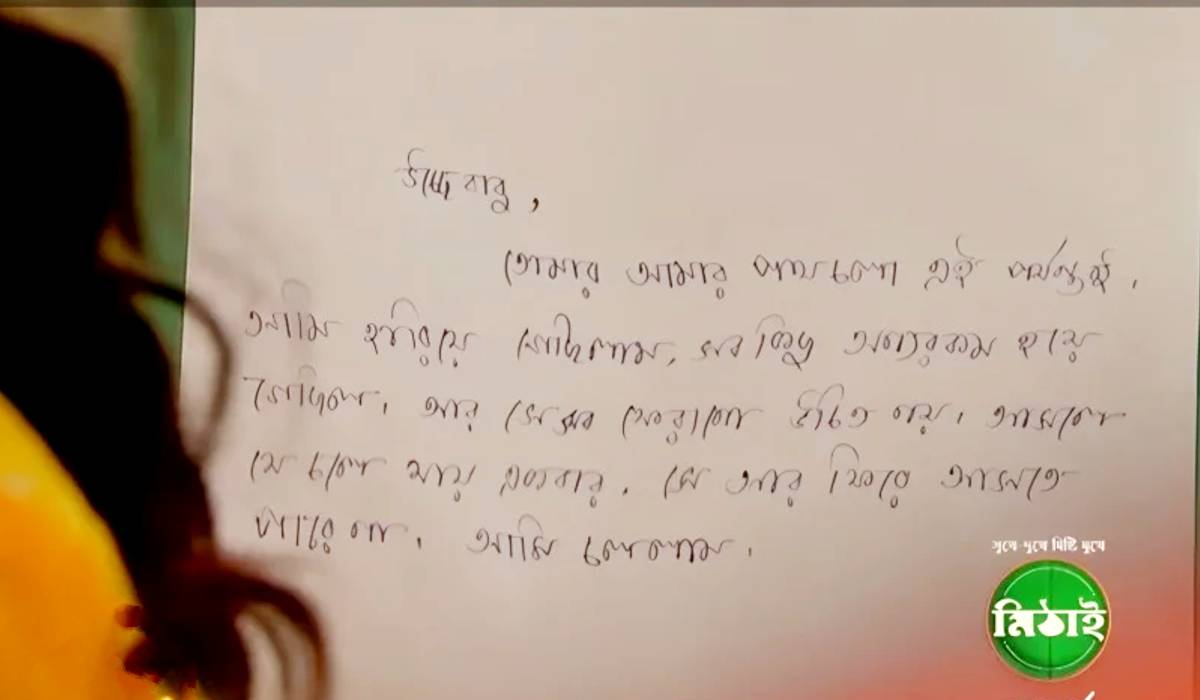 উচ্ছেবাবু,
তোমার আমার পথচলা এই পর্যন্তই।
আমি হারিয়ে গেছিলাম, সব কিছু অন্যরকম হয়ে
গেছিল। আর সেসব ফেরানো যাবে নয়। আসলে
যে চলে যায় একবার, সে আর ফিরে আসতে
পারে না। আমি চললাম।
সুখে-দুখে মিষ্টি মুখে
মিঠাই